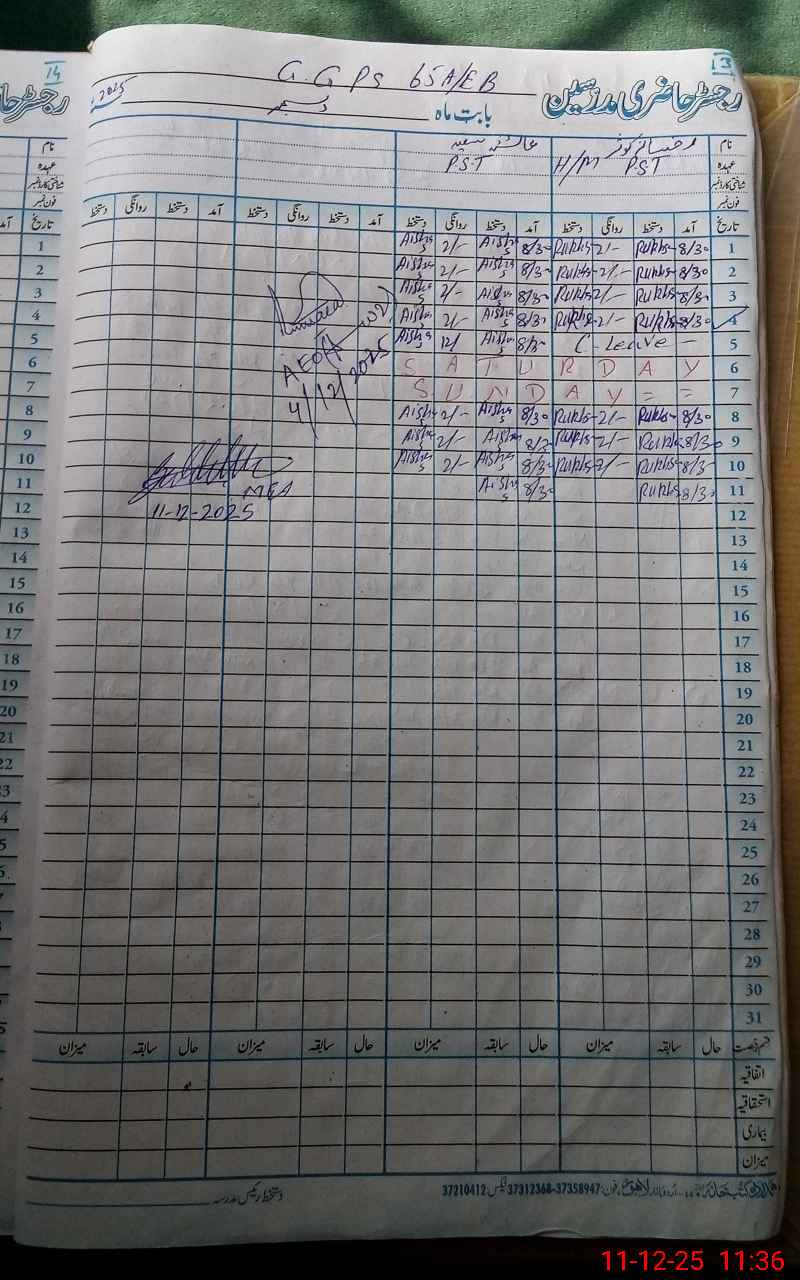 14
13
G.GPS 65A/EB
رجسٹر حاضری مدرسین
بابت ماہ دسمبر 2025ء
نام
عہدہ H/M PST P.S.T
شناختی کارڈ نمبر
فون نمبر
تاریخ آمد دستخط روانگی دستخط آمد دستخط روانگی دستخط آمد دستخط روانگی دستخط آمد دستخط روانگی دستخط
1 8/30 Rukhs 2/- Rukhs 8/30 Aisha S 2/- Aisha S
2 8/30 Rukhs 2/- Rukhs 8/30 Aisha S 2/- Aisha S
3 8/30 Rukhs 2/- Rukhs 8/30 Aisha S 2/- Aisha S
4 8/30 Rukhs 2/- Rukhs 8/30 Aisha S 2/- Aisha S
5 C-Leave - 8/30 Aisha S 12/ Aisha S
6 SATURDAY
7 SUNDAY = =
8 8/30 Rukhs 2/- Rukhs 8/30 Aisha S 2/- Aisha S
9 8/30 Rukhs 2/- Rukhs 8/30 Aisha S 2/- Aisha S
10 8/30 Rukhs 2/- Rukhs 8/30 Aisha S 2/- Aisha S
11 8/30 Rukhs 8/30 Aisha S
4/12/2025
MEA
11-12-2025
12
13
14
15
16
17
18
19
20
21
22
23
24
25
26
27
28
29
30
31
قسم رخصت حال سابقہ میزان حال سابقہ میزان حال سابقہ میزان حال سابقہ میزان
اتفاقیہ
استحقاقیہ
بیماری
میزان
لاہور فون: 37358947-37312368 فیکس: 37210412
دستخط رئیس مدرسہ
11-12-25 11:36